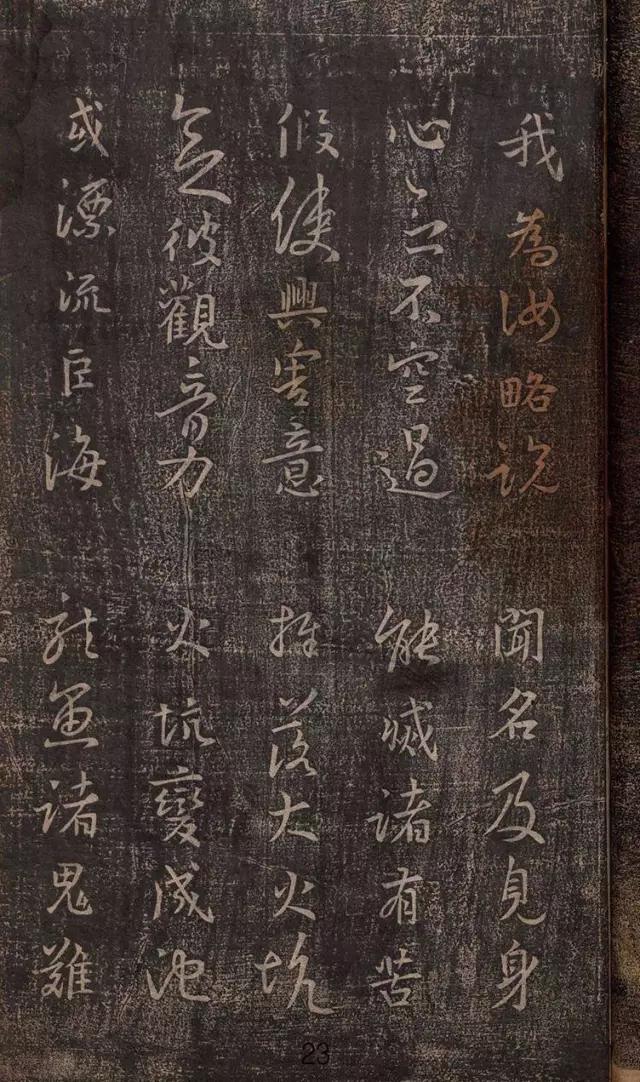 我為汝略說 聞名及見身
心念不空過 能滅諸有苦
假使興害意 推落大火坑
念彼觀音力 火坑變成池
或漂流巨海 龍魚諸鬼難
23